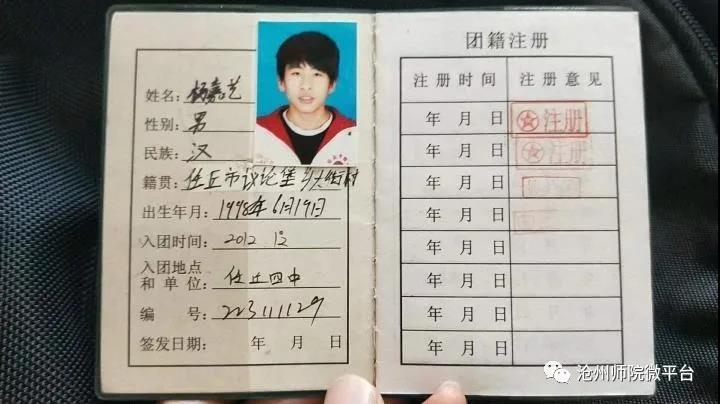 姓名：杨嘉艺
性别：男
民族：汉
籍贯：任丘市议论堡乡大街村
出生年月：1998年6月19日
入团时间：2012.12
入团地点
和单位：任丘四中
编 号：223111129
签发日期： 年 月 日
团籍注册
注册时间 注册意见
年 月 日 注册
年 月 日 注册
年 月 日
年 月 日
年 月 日
年 月 日
年 月 日
年 月 日
沧州师院微平台